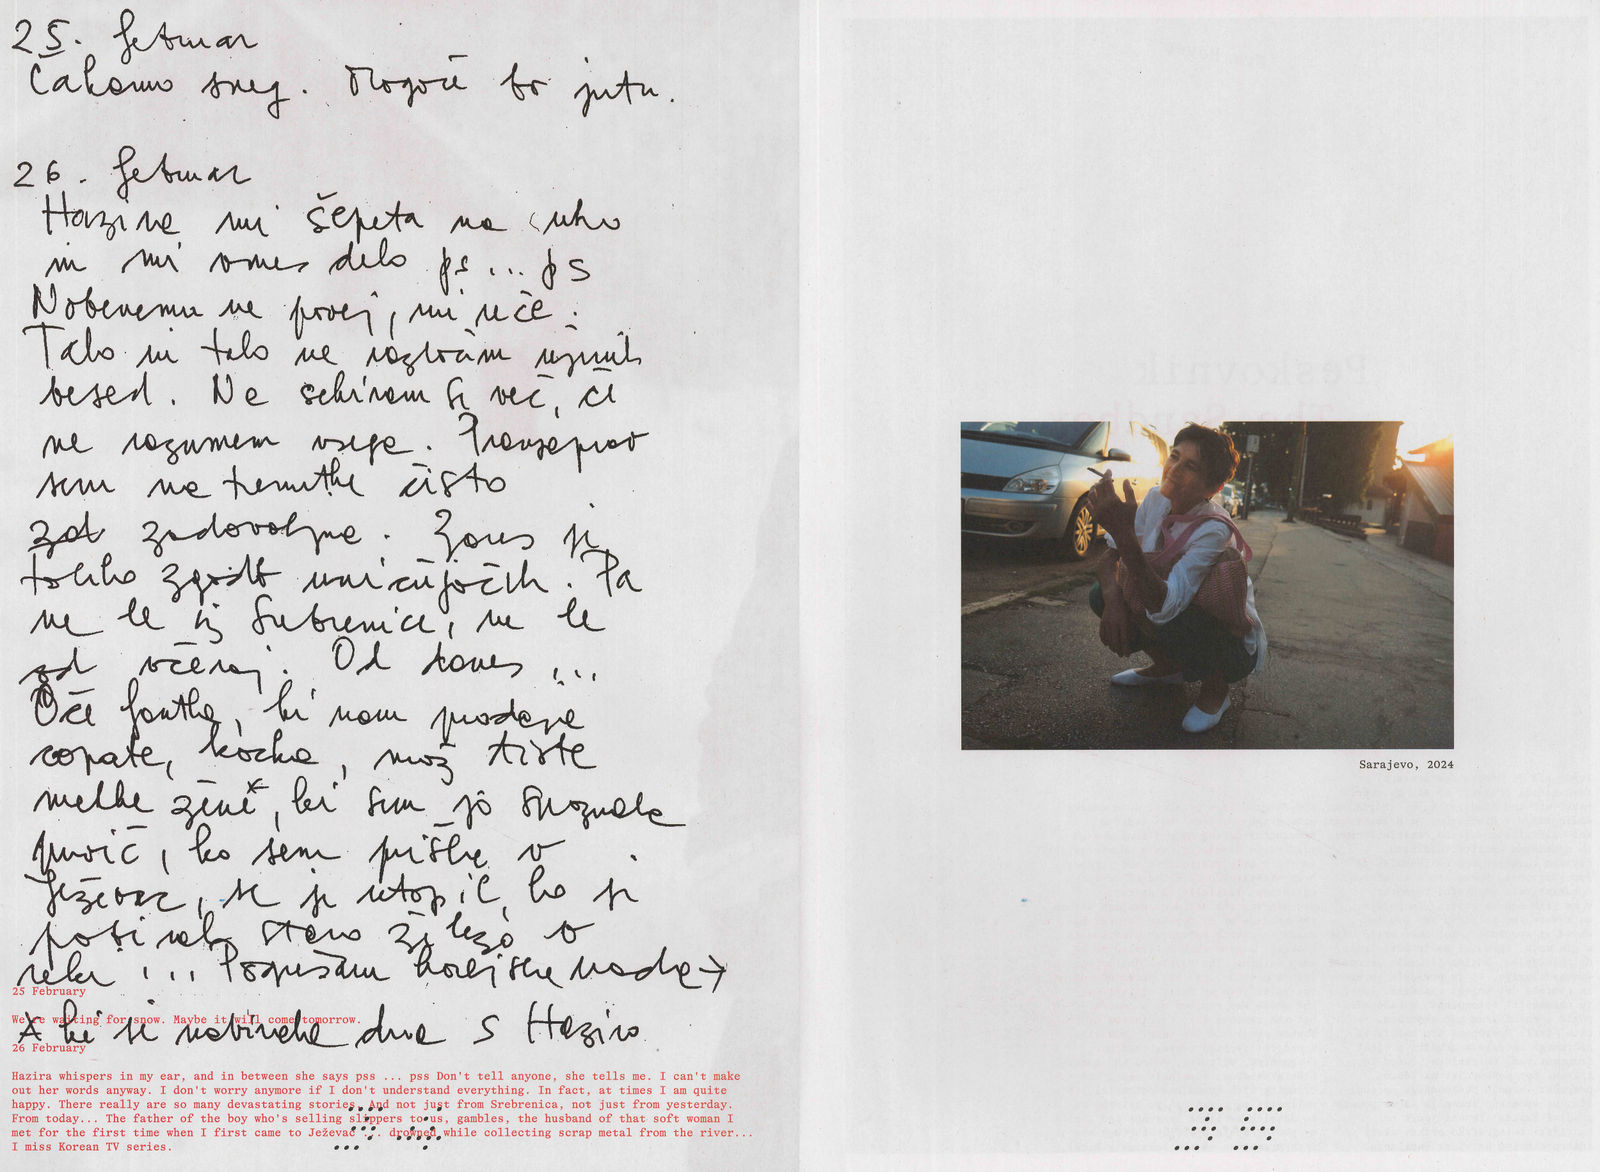 25. februar
Čakamo sneg. Mogoče bo jutri.
26. februar
Hazira mi šepeta na uho
in mi vmes dela ps... ps
Nobenemu ne povej, mi reče.
Tako in tako ne razločim njenih
besed. Ne sekiram se več, če
ne razumem vsega. Pravzaprav
sem na trenutke čisto
zadovoljna. Zares je
toliko zgodb uničujočih. Pa
ne le iz Srebrenice, ne le
od včeraj. Od danes ...
Oče fantka, ki nam prodaja
copate, kocka, mož tiste
mehke žene, ki sem jo spoznala
prvič, ko sem prišla v
Ježevac, se je utopil, ko je
pobiral staro železo v
reki ... Pogrešam korejske nada→
ki si nabirala drva s Haziro
25 February
We're waiting for snow. Maybe it will come tomorrow.
26 February
Hazira whispers in my ear, and in between she says pss ... pss Don't tell anyone, she tells me. I can't make
out her words anyway. I don't worry anymore if I don't understand everything. In fact, at times I am quite
happy. There really are so many devastating stories. And not just from Srebrenica, not just from yesterday.
From today... The father of the boy who's selling slippers to us, gambles, the husband of that soft woman I
met for the first time when I first came to Ježevac ... drowned while collecting scrap metal from the river...
I miss Korean TV series.
Sarajevo, 2024
35